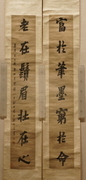 富於筆墨窮於命
老在鬚眉壯在心